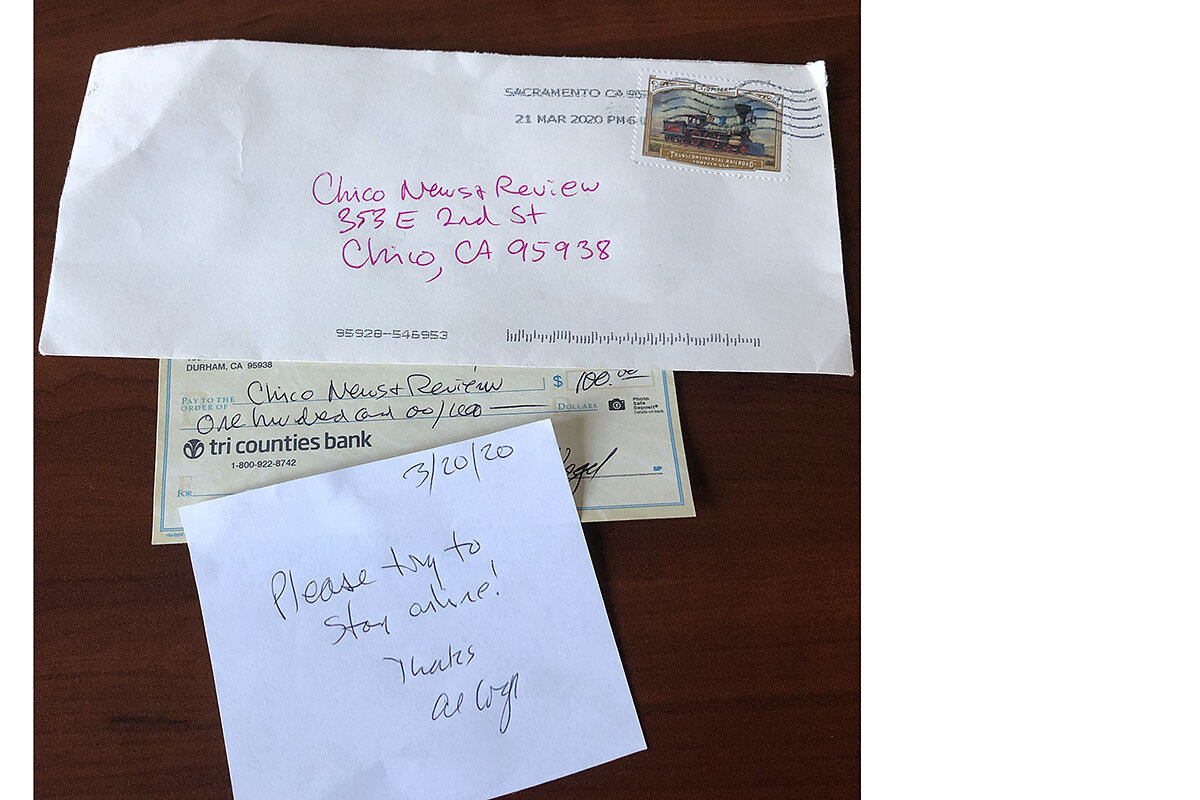 SACRAMENTO CA 95
21 MAR 2020 PM 6
JUPITER
TRANSCONTINENTAL RAILROAD
FOREVER USA
Chico News & Review
353 E 2nd St
Chico, CA 95938
95928-546953
DURHAM, CA 95938
PAY TO THE
ORDER OF Chico News & Review $ 100.00
One hundred and 00/100 DOLLARS
Photo
Safe
Deposit®
Details on back
tri counties bank
1-800-922-8742
FOR
MP
Harland
3/20/20
Please try to
stay online!
Thanks